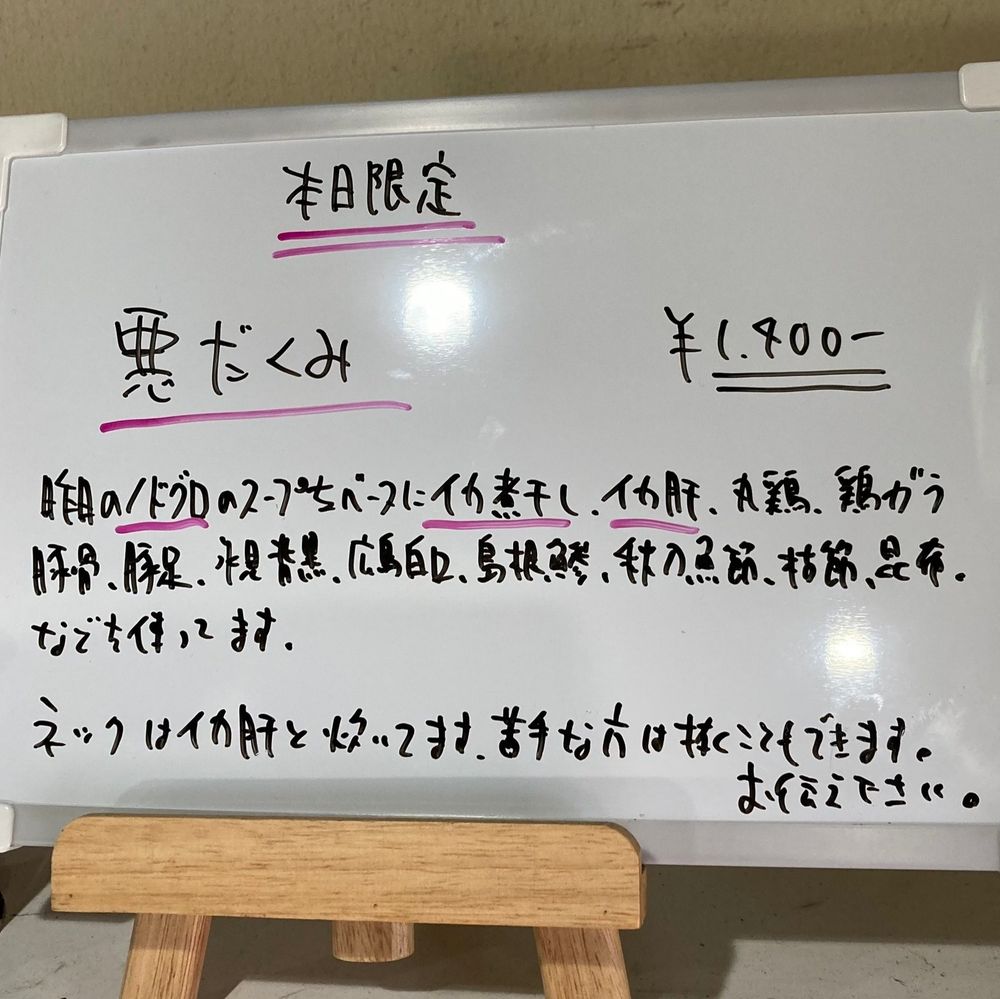 本日限定
悪だくみ ¥1.400-
昨日のノドグロのスープもベースにイカ煮干し、イカ肝、丸鶏、鶏ガラ
豚骨、豚足、氷見背黒、広島白口、島根鯵、秋刀魚節、枯節、昆布。
なども使ってます。
ネックはイカ肝と炊いてます。苦手な方は抜くこともできます。
お伝え下さい。